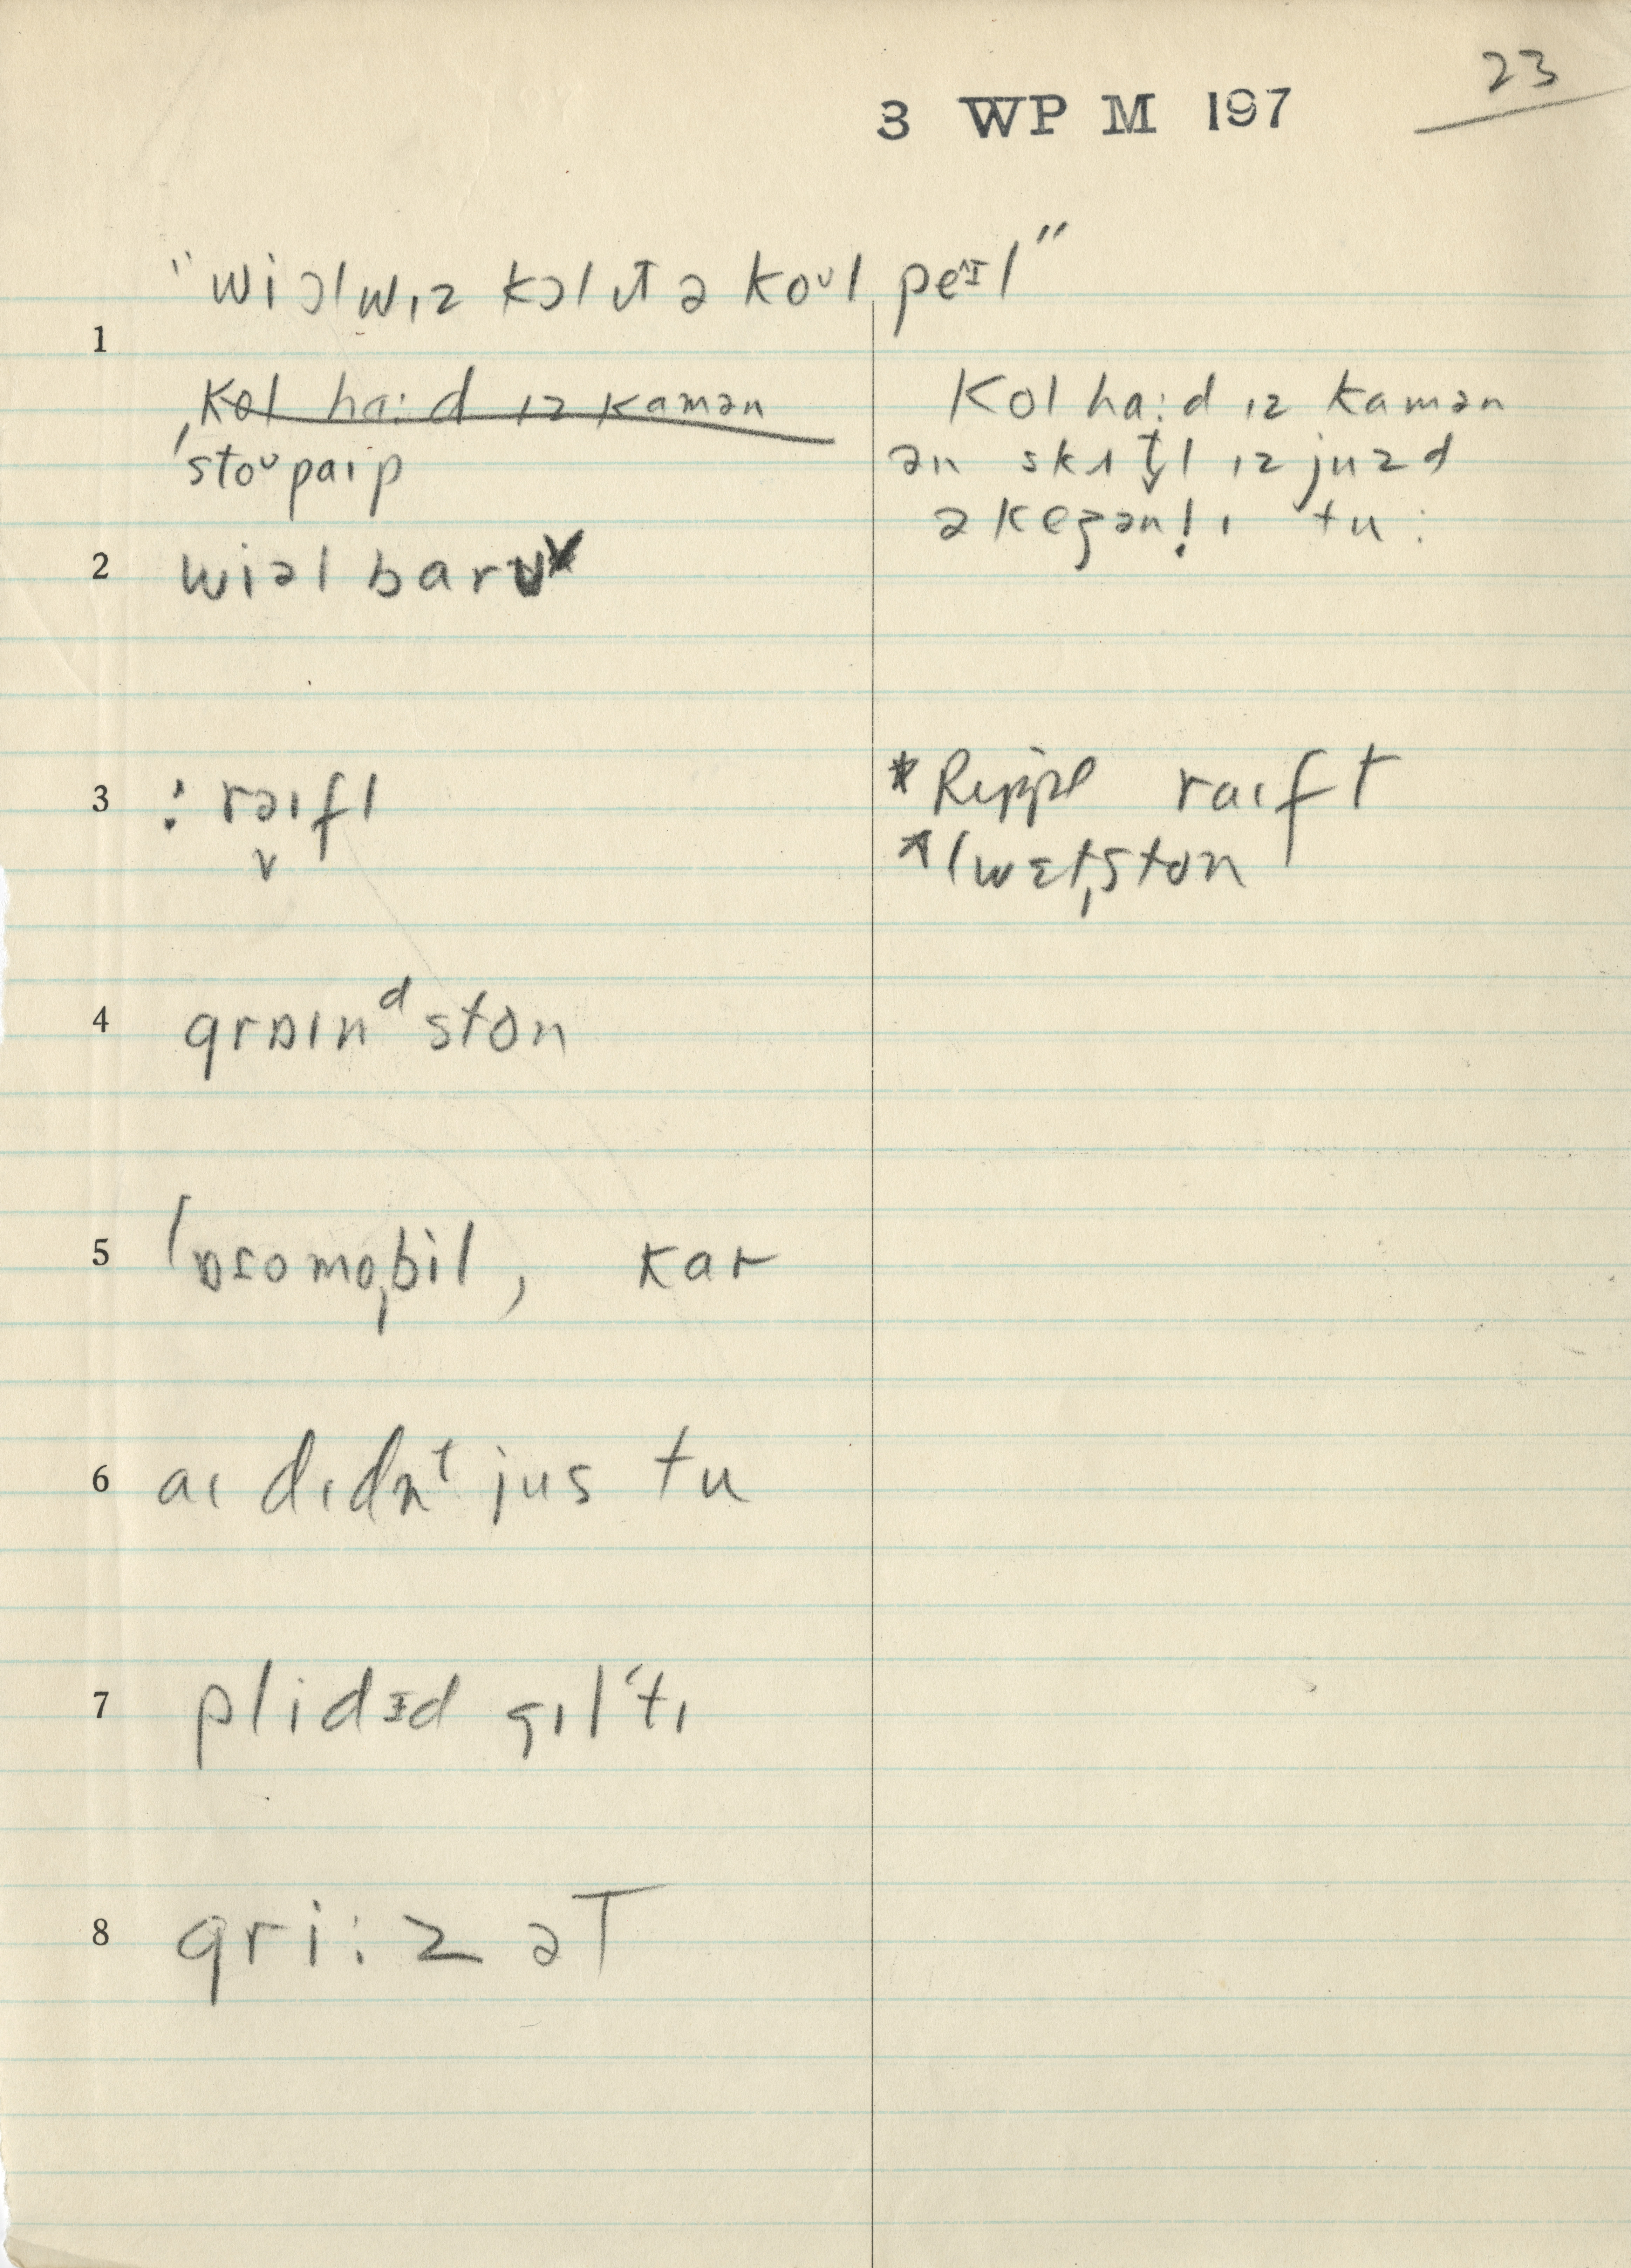 23
3 WP M 197
"wiɔlwɪz kɔl ɪt ə koᴜl peɪl"
1
Kol ha:d ɪz kamən
ˌstoᴜpaɪp
Kol ha:d ɪz kamən
ən skʌtl ɪz juzd
əkeʒənl̩ɪ tu:
2 wiəl barʊ
3 : raɪfl
* Ripple raɪft
* ˈwɛtˌston
4 graɪnᵈston
5 ˈɒtomoˌbil, kar
6 aɪ dɪdnᵗ jus tu
7 plidɪd gɪlʻtɪ
8 gri:z ət